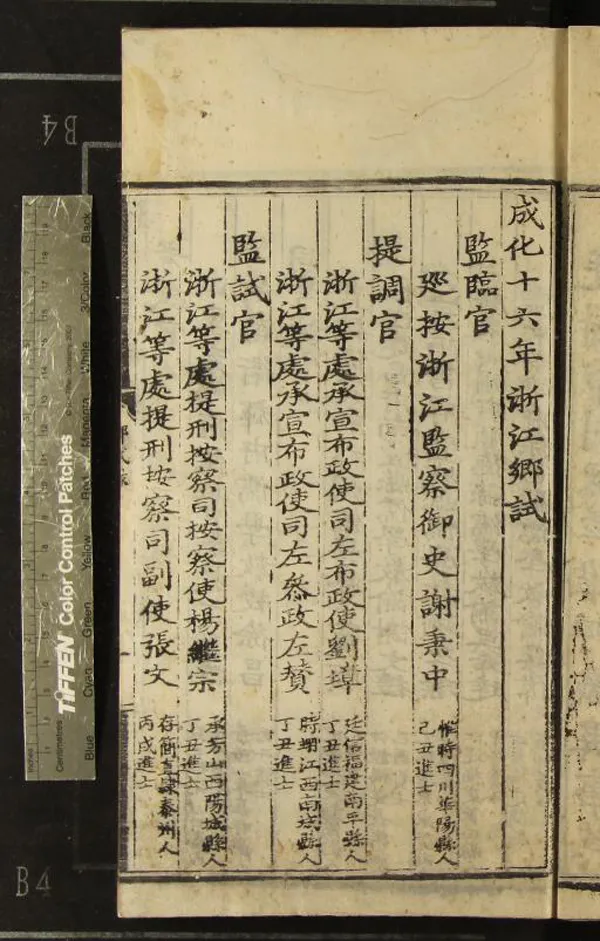 成化十六年浙江鄉試
監臨官
廵按浙江監察御史謝秉中
惟時四川華陽縣人
己丑進士
提調官
浙江等處承宣布政使司左布政使劉璋
廷信福建南平縣人
丁丑進士
浙江等處承宣布政使司左叅政左贊
時翊江西南城縣人
丁丑進士
監試官
浙江等處提刑按察司按察使楊繼宗
承芳山西陽城縣人
丁丑進士
浙江等處提刑按察司副使張文
存簡直隷泰州人
丙戌進士
B4
B4
TIFFEN Color Control Patches
Blue Cyan Green Yellow Red Magenta White 3/Color Black
Inches
Centimetres